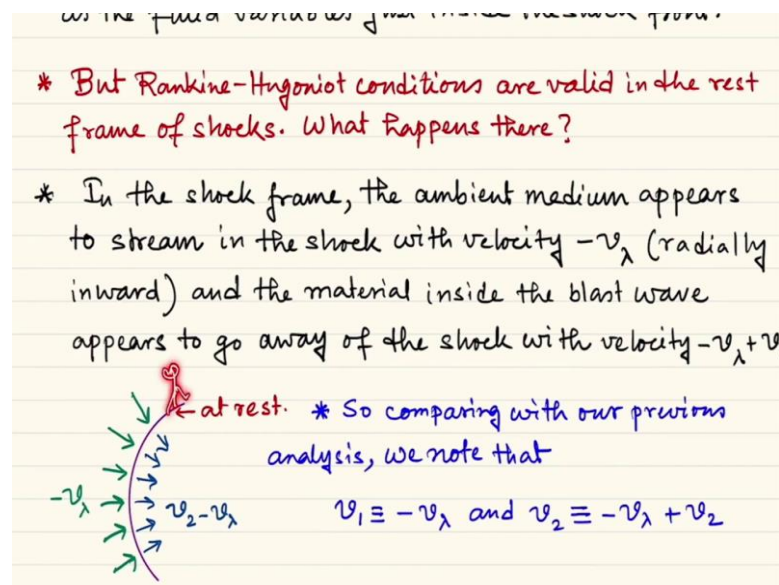 as the fluid variables just inside the shock front.
* But Rankine-Hugoniot conditions are valid in the rest
frame of shocks. What happens there?
* In the shock frame, the ambient medium appears
to stream in the shock with velocity -v_λ (radially
inward) and the material inside the blast wave
appears to go away of the shock with velocity -v_λ + v
← at rest.
* So comparing with our previous
analysis, we note that
-v_λ
v₂-v_λ
v₁ ≡ -v_λ and v₂ ≡ -v_λ + v₂